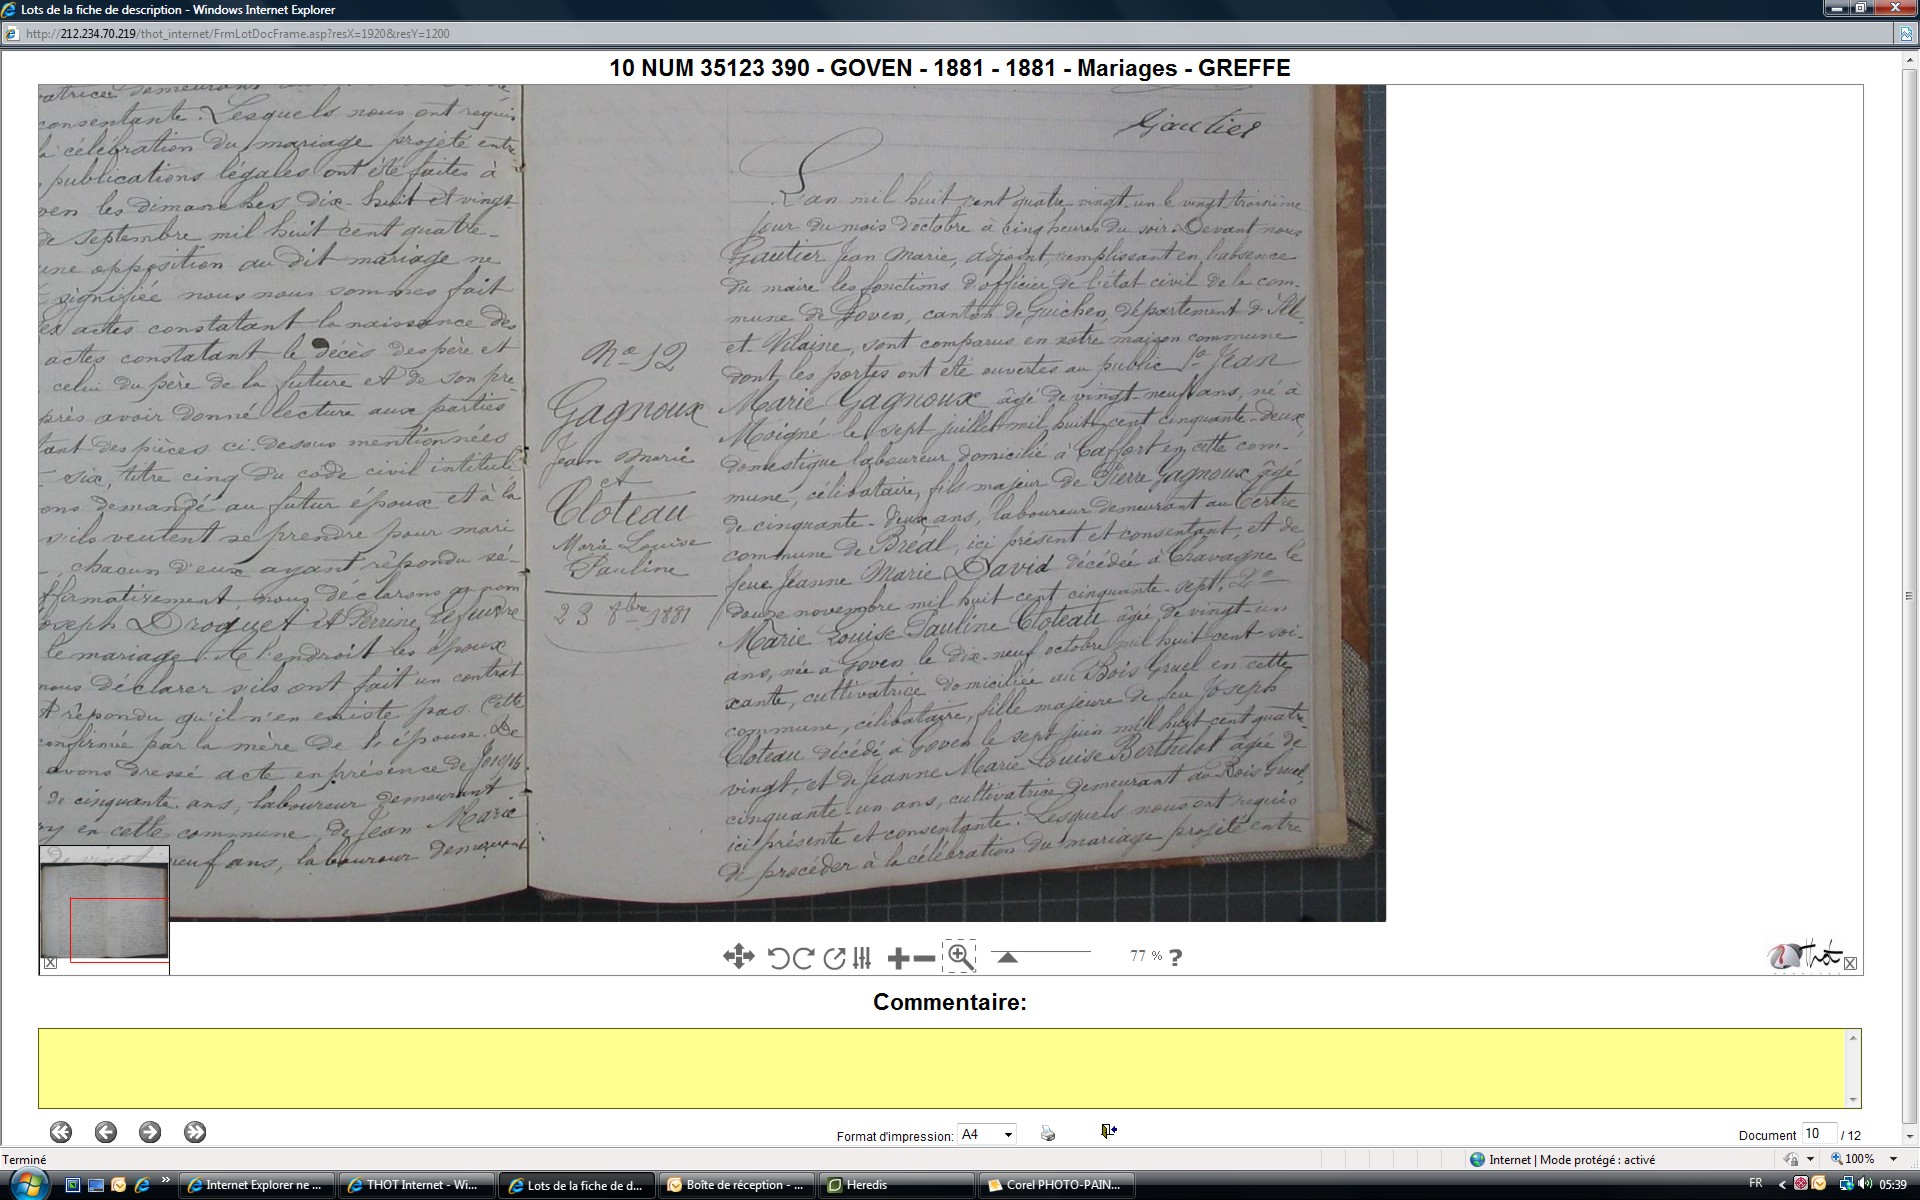 Lots de la fiche de description - Windows Internet Explorer
http://212.234.70.219/thot_internet/FrmLotDocFrame.asp?resX=1920&resY=1200
10 NUM 35123 390 - GOVEN - 1881 - 1881 - Mariages - GREFFE
consentante. Lesquels nous ont requis
la célébration du mariage projeté entre
publications légales ont été faites à
ven les dimanches dix-huit et vingt-
de septembre mil huit cent quatre-
une opposition au dit mariage ne
signifiée nous nous sommes fait
actes constatant la naissance des
actes constatant le décès des père et
celui du père de la future et de son pre-
près avoir donné lecture aux parties
tant des pièces ci-dessus mentionnées
six, titre cinq du code civil intitulé
ons demandé au futur époux et à la
s'ils veulent se prendre pour mari
chacun d'eux ayant répondu sé-
ffirmativement nous déclarons au nom
oseph Droguet et Perrine Lefeuvre
le mariage. A l'endroit les époux
nous déclarer s'ils ont fait un contrat
répondu qu'il n'en existe pas. Cette
confirmée par la mère de l'épouse. De
avons dressé acte en présence de Joseph
de cinquante ans, laboureur demeurant
ry en cette commune, de Jean Marie
de vingt neuf ans, laboureur demeurant
No 12
Gagnoux
Jean Marie
et
Cloteau
Marie Louise
Pauline
23 8bre 1881
Gautier
L'an mil huit cent quatre-vingt-un le vingt troisième
jour du mois d'octobre à cinq heures du soir. Devant nous
Gautier Jean Marie, adjoint, remplissant en l'absence
du maire les fonctions d'officier de l'état civil de la com-
mune de Goven, canton de Guichen, département d'Ille-
et-Vilaine, sont comparus en notre maison commune
dont les portes ont été ouvertes au public 1o Jean
Marie Gagnoux âgé de vingt-neuf ans, né à
Moigné le sept juillet mil huit cent cinquante-deux,
domestique laboureur domicilié à Caffort en cette com-
mune, célibataire, fils majeur de Pierre Gagnoux âgé
de cinquante-deux ans, laboureur demeurant au Tertre
commune de Bréal, ici présent et consentant, et de
feue Jeanne Marie David décédée à Chavagne le
douze novembre mil huit cent cinquante-sept. 2o
Marie Louise Pauline Cloteau âgée de vingt-un
ans, née à Goven le dix-neuf octobre mil huit cent soi-
xante, cultivatrice domiciliée au Bois Gruel en cette
commune, célibataire, fille majeure de feu Joseph
Cloteau décédé à Goven le sept juin mil huit cent quatre-
vingt, et de Jeanne Marie Louise Berthelot âgée de
cinquante-un ans, cultivatrice demeurant au Bois Gruel,
ici présente et consentante. Lesquels nous ont requis
de procéder à la célébration du mariage projeté entre
77 % ?
Thot
Commentaire:
Format d'impression: A4
Document 10 / 12
Terminé
Internet | Mode protégé : activé
100%
Internet Explorer ne ...
THOT Internet - Wi...
Lots de la fiche de d...
Boîte de réception - ...
Heredis
Corel PHOTO-PAIN...
FR
05:39